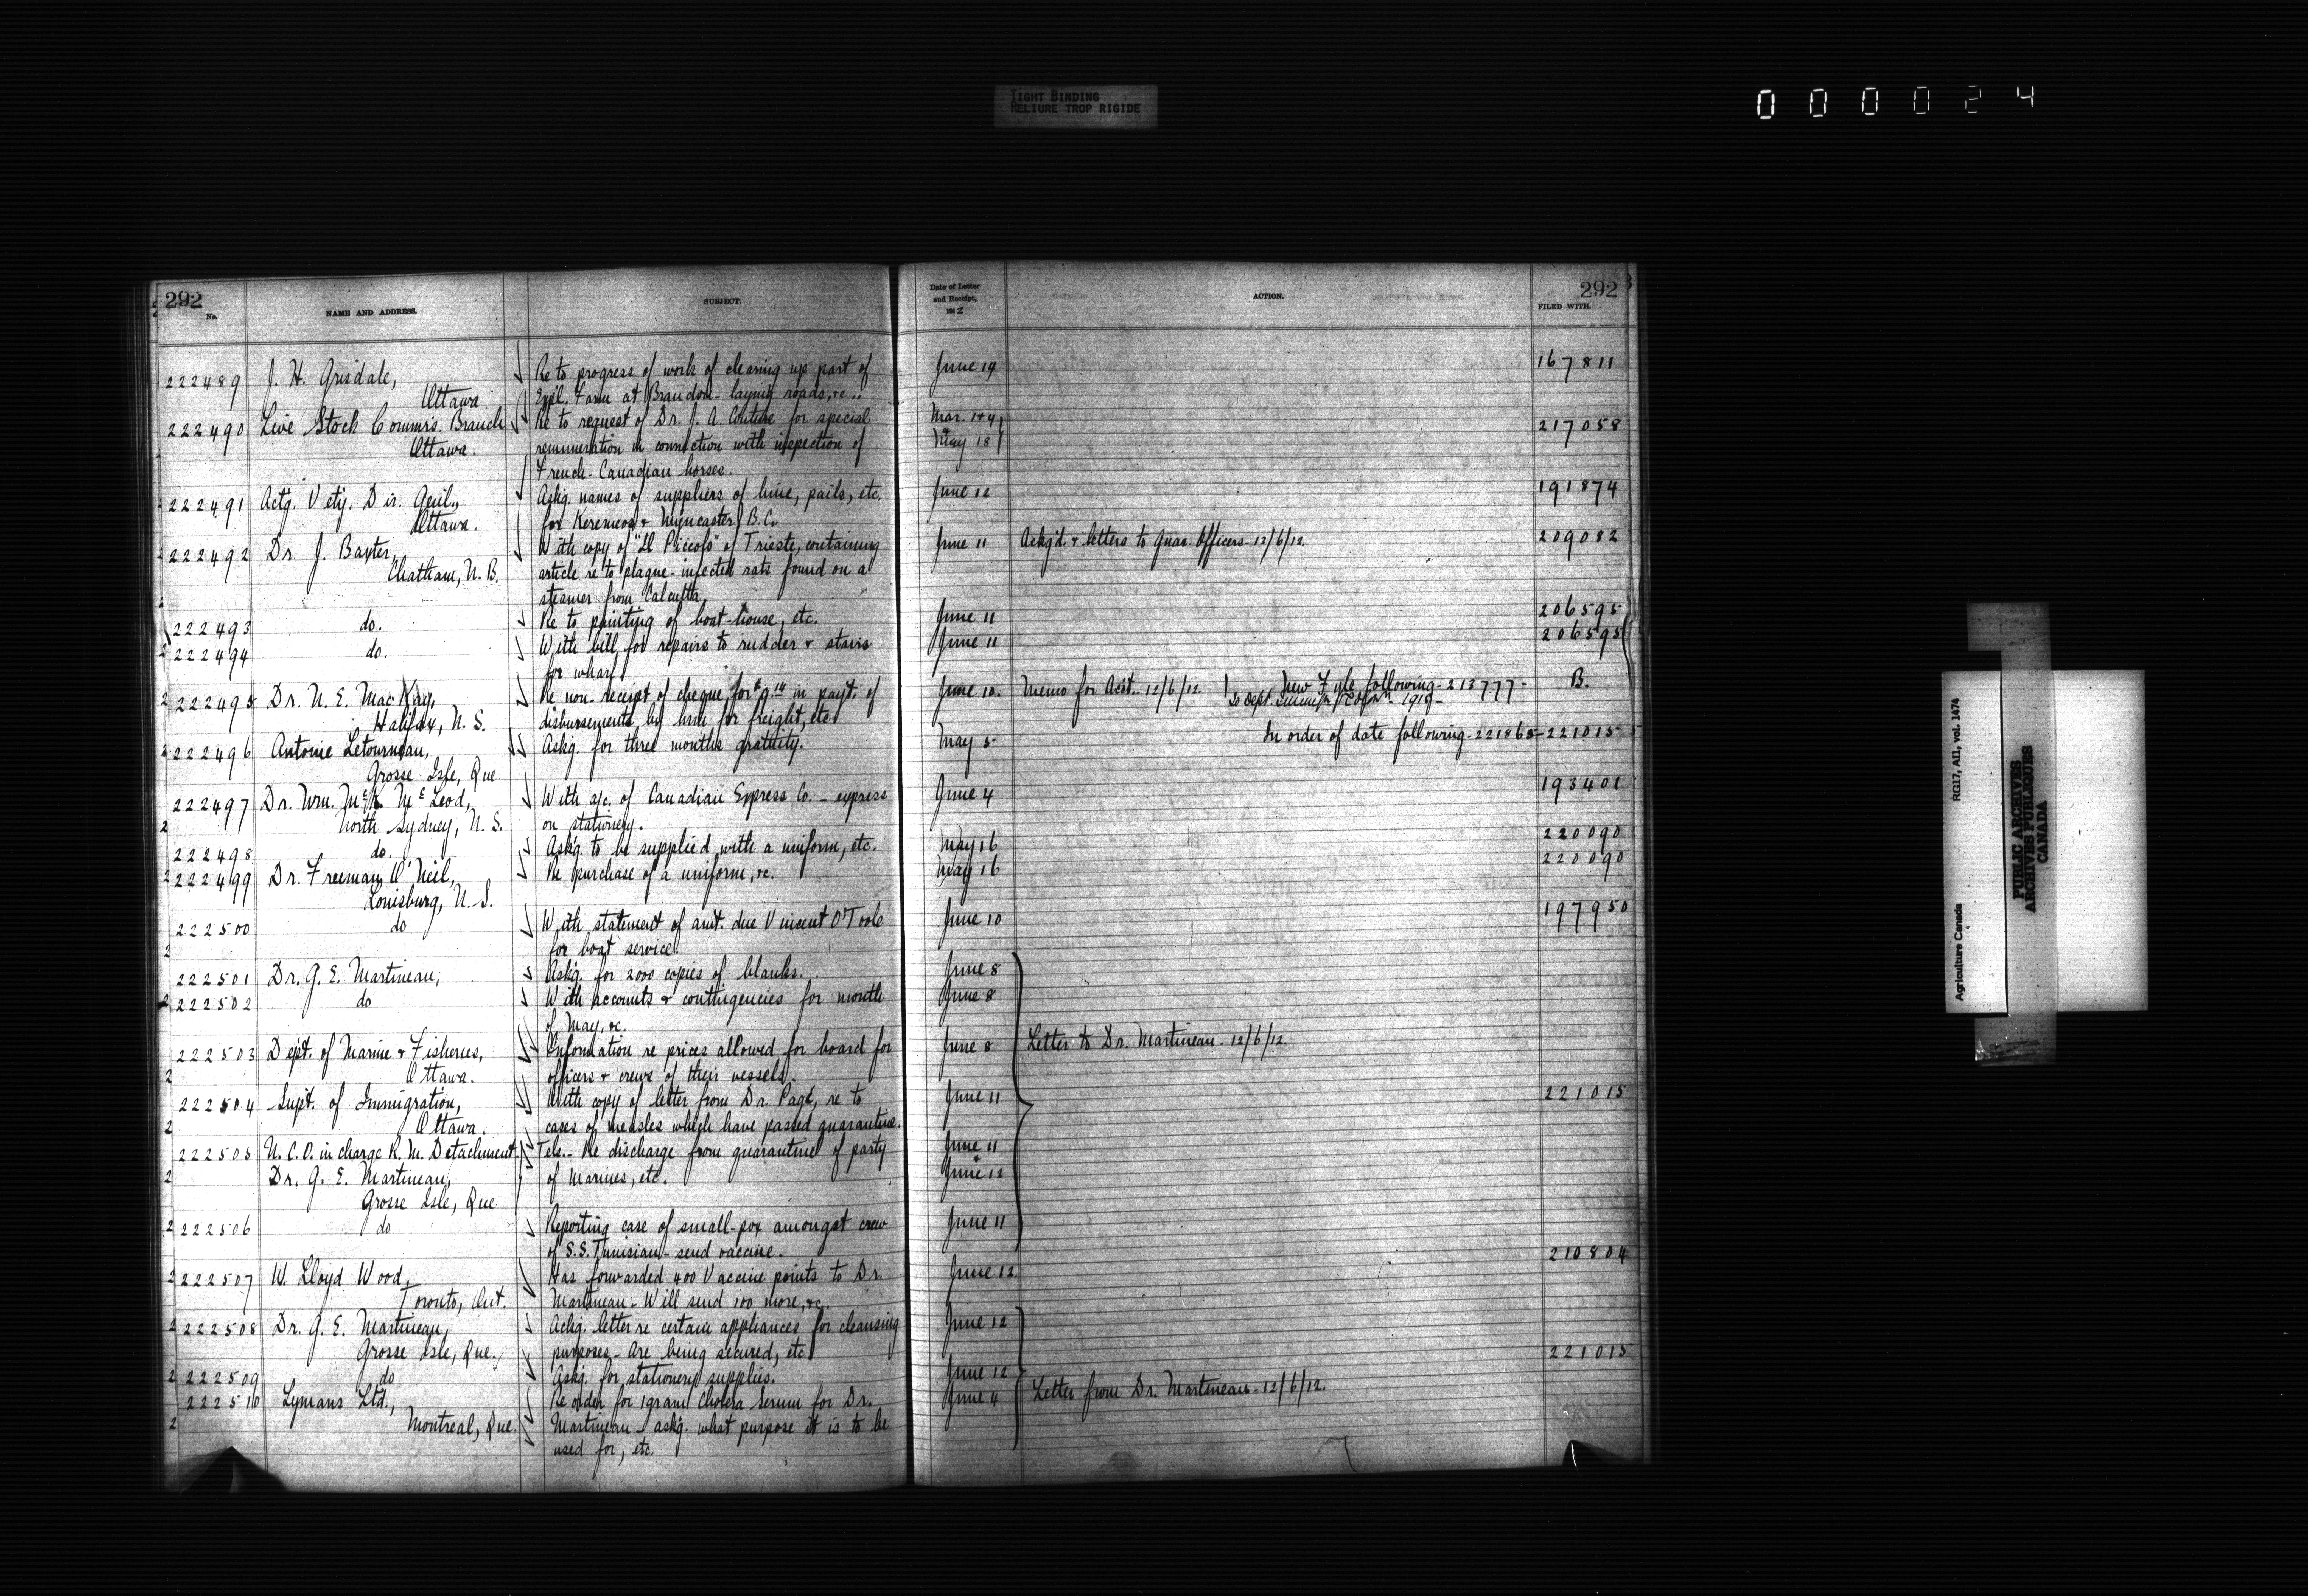 TIGHT BINDING
RELIURE TROP RIGIDE
000024
292
No.
NAME AND ADDRESS.
SUBJECT.
222489 J. H. Grisdale, Re to progress of work of clearing up part of
Ottawa Expl. Farm at Brandon - laying roads, &c.
222490 Live Stock Commrs. Branch Re to request of Dr. J. A. Couture for special
Ottawa. remuneration in connection with inspection of
French-Canadian horses.
222491 Actg. Vety. Dir. Genl., Askg. names of suppliers of lime, pails, etc.
Ottawa. for Keremeos & Myncaster B.C.
222492 Dr. J. Baxter, With copy of "Il Piccolo" of Trieste, containing
Chatham, N.B. article re to plague-infected rats found on a
steamer from Calcutta.
222493 do. Re to painting of boat-house, etc.
222494 do. With bill for repairs to rudder & stairs
for wharf
222495 Dr. N. E. MacKay, Re non-receipt of cheque for in payt. of
Halifax, N.S. disbursements by him for freight, etc
222496 Antoine Letourneau, Askg. for three months gratuity.
Grosse Isle, Que
222497 Dr. Wm. McK. McLeod, With a/c. of Canadian Express Co. - express
North Sydney, N.S. on stationery.
222498 do. Askg. to be supplied with a uniform, etc.
222499 Dr. Freeman O'Neil, Re purchase of a uniform, &c.
Louisburg, N.S.
222500 do With statement of amt. due Vincent O'Toole
for boat service.
222501 Dr. G. E. Martineau, Askg. for 2000 copies of blanks.
222502 do With accounts & contingencies for month
of May, &c.
222503 Dept. of Marine & Fisheries, Information re prices allowed for board for
Ottawa. officers & crews of their vessels.
222504 Supt. of Immigration, With copy of letter from Dr. Pagé, re to
Ottawa. cases of measles which have passed quarantine.
222505 N.C.O. in charge R. M. Detachment Tels. - Re discharge from quarantine of party
Dr. G. E. Martineau, of Marines, etc.
Grosse Isle, Que
222506 do Reporting case of small-pox amongst crew
of S.S. Tunisian - send vaccine.
222507 W. Lloyd Wood, Has forwarded 400 Vaccine points to Dr.
Toronto, Ont. Martineau - Will send 100 more, &c.
222508 Dr. G. E. Martineau, Ackg. letter re certain appliances for cleansing
Grosse Isle, Que. purposes - Are being secured, etc
222509 do Askg. for stationery supplies.
222510 Lymans Ltd., Re order for 1 gram Cholera Serum for Dr.
Montreal, Que. Martineau - askg. what purpose it is to be
used for, etc.
Date of Letter
and Receipt,
1912
ACTION.
292
FILED WITH.
June 14 167811
Mar. 1 & 4,
& 217058
May 18
June 12 191874
June 11 Ackg'd. & letters to Quar. Officers - 12/6/12. 209082
June 11 206595
June 11 206595
June 10. Memo for Acct. - 12/6/12. New Fyle following - 213777 - B.
1919 -
May 5 In order of date following - 221865 - 221015
June 4 193401
May 16 220090
May 16 220090
June 10 197950
June 8
June 8
June 8 Letter to Dr. Martineau - 12/6/12.
June 11 221015
June 11
&
June 12
June 11
June 12. 210804
June 12
June 12 221015
June 11 Letter from Dr. Martineau - 12/6/12.
Agriculture Canada RG17, AII, vol. 1474
PUBLIC ARCHIVES
ARCHIVES PUBLIQUES
CANADA